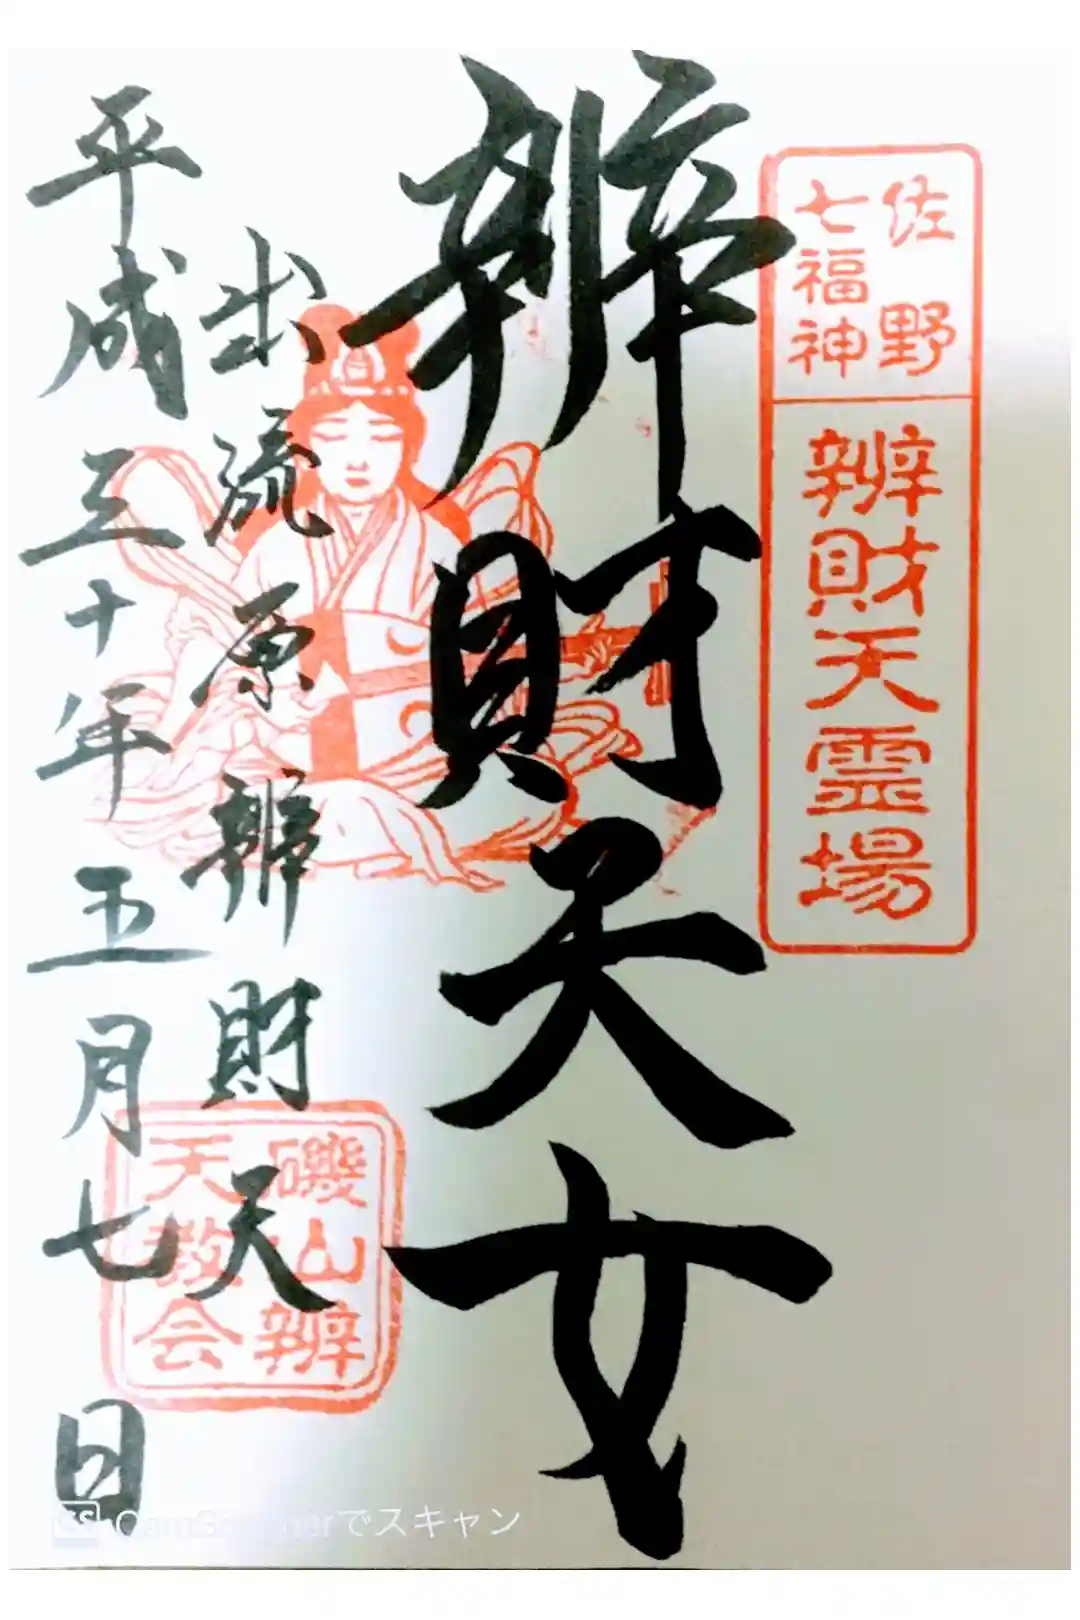 佐野
七福神
辨財天霊場
辨財天女
出流原辨財天
平成三十年五月七日
磯山辨
天教会
CS CamScannerでスキャン